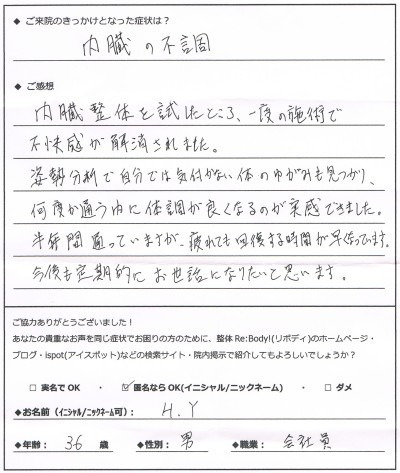 ◆ ご来院のきっかけとなった症状は？
内臓の不調
◆ ご感想
内臓整体を試したところ、一度の施術で
不快感が解消されました。
姿勢分析で自分では気付かない体のゆがみも見つかり、
何度か通う内に体調が良くなるのが実感できました。
半年間通っていますが、疲れても回復する時間が早くなっています。
今後も定期的にお世話になりたいと思います。
ご協力ありがとうございました！
あなたの貴重なお声を同じ症状でお困りの方のために、整体 Re:Body!(リボディ)のホームページ・
ブログ・ispot(アイスポット)などの検索サイト・院内掲示で紹介してもよろしいでしょうか？
□ 実名でOK ・ ☑ 匿名ならOK(イニシャル/ニックネーム) ・ □ ダメ
◆お名前（イニシャル/ニックネーム可）： H.Y
◆年齢： 36 歳 ◆性別： 男 ◆職業： 会社員